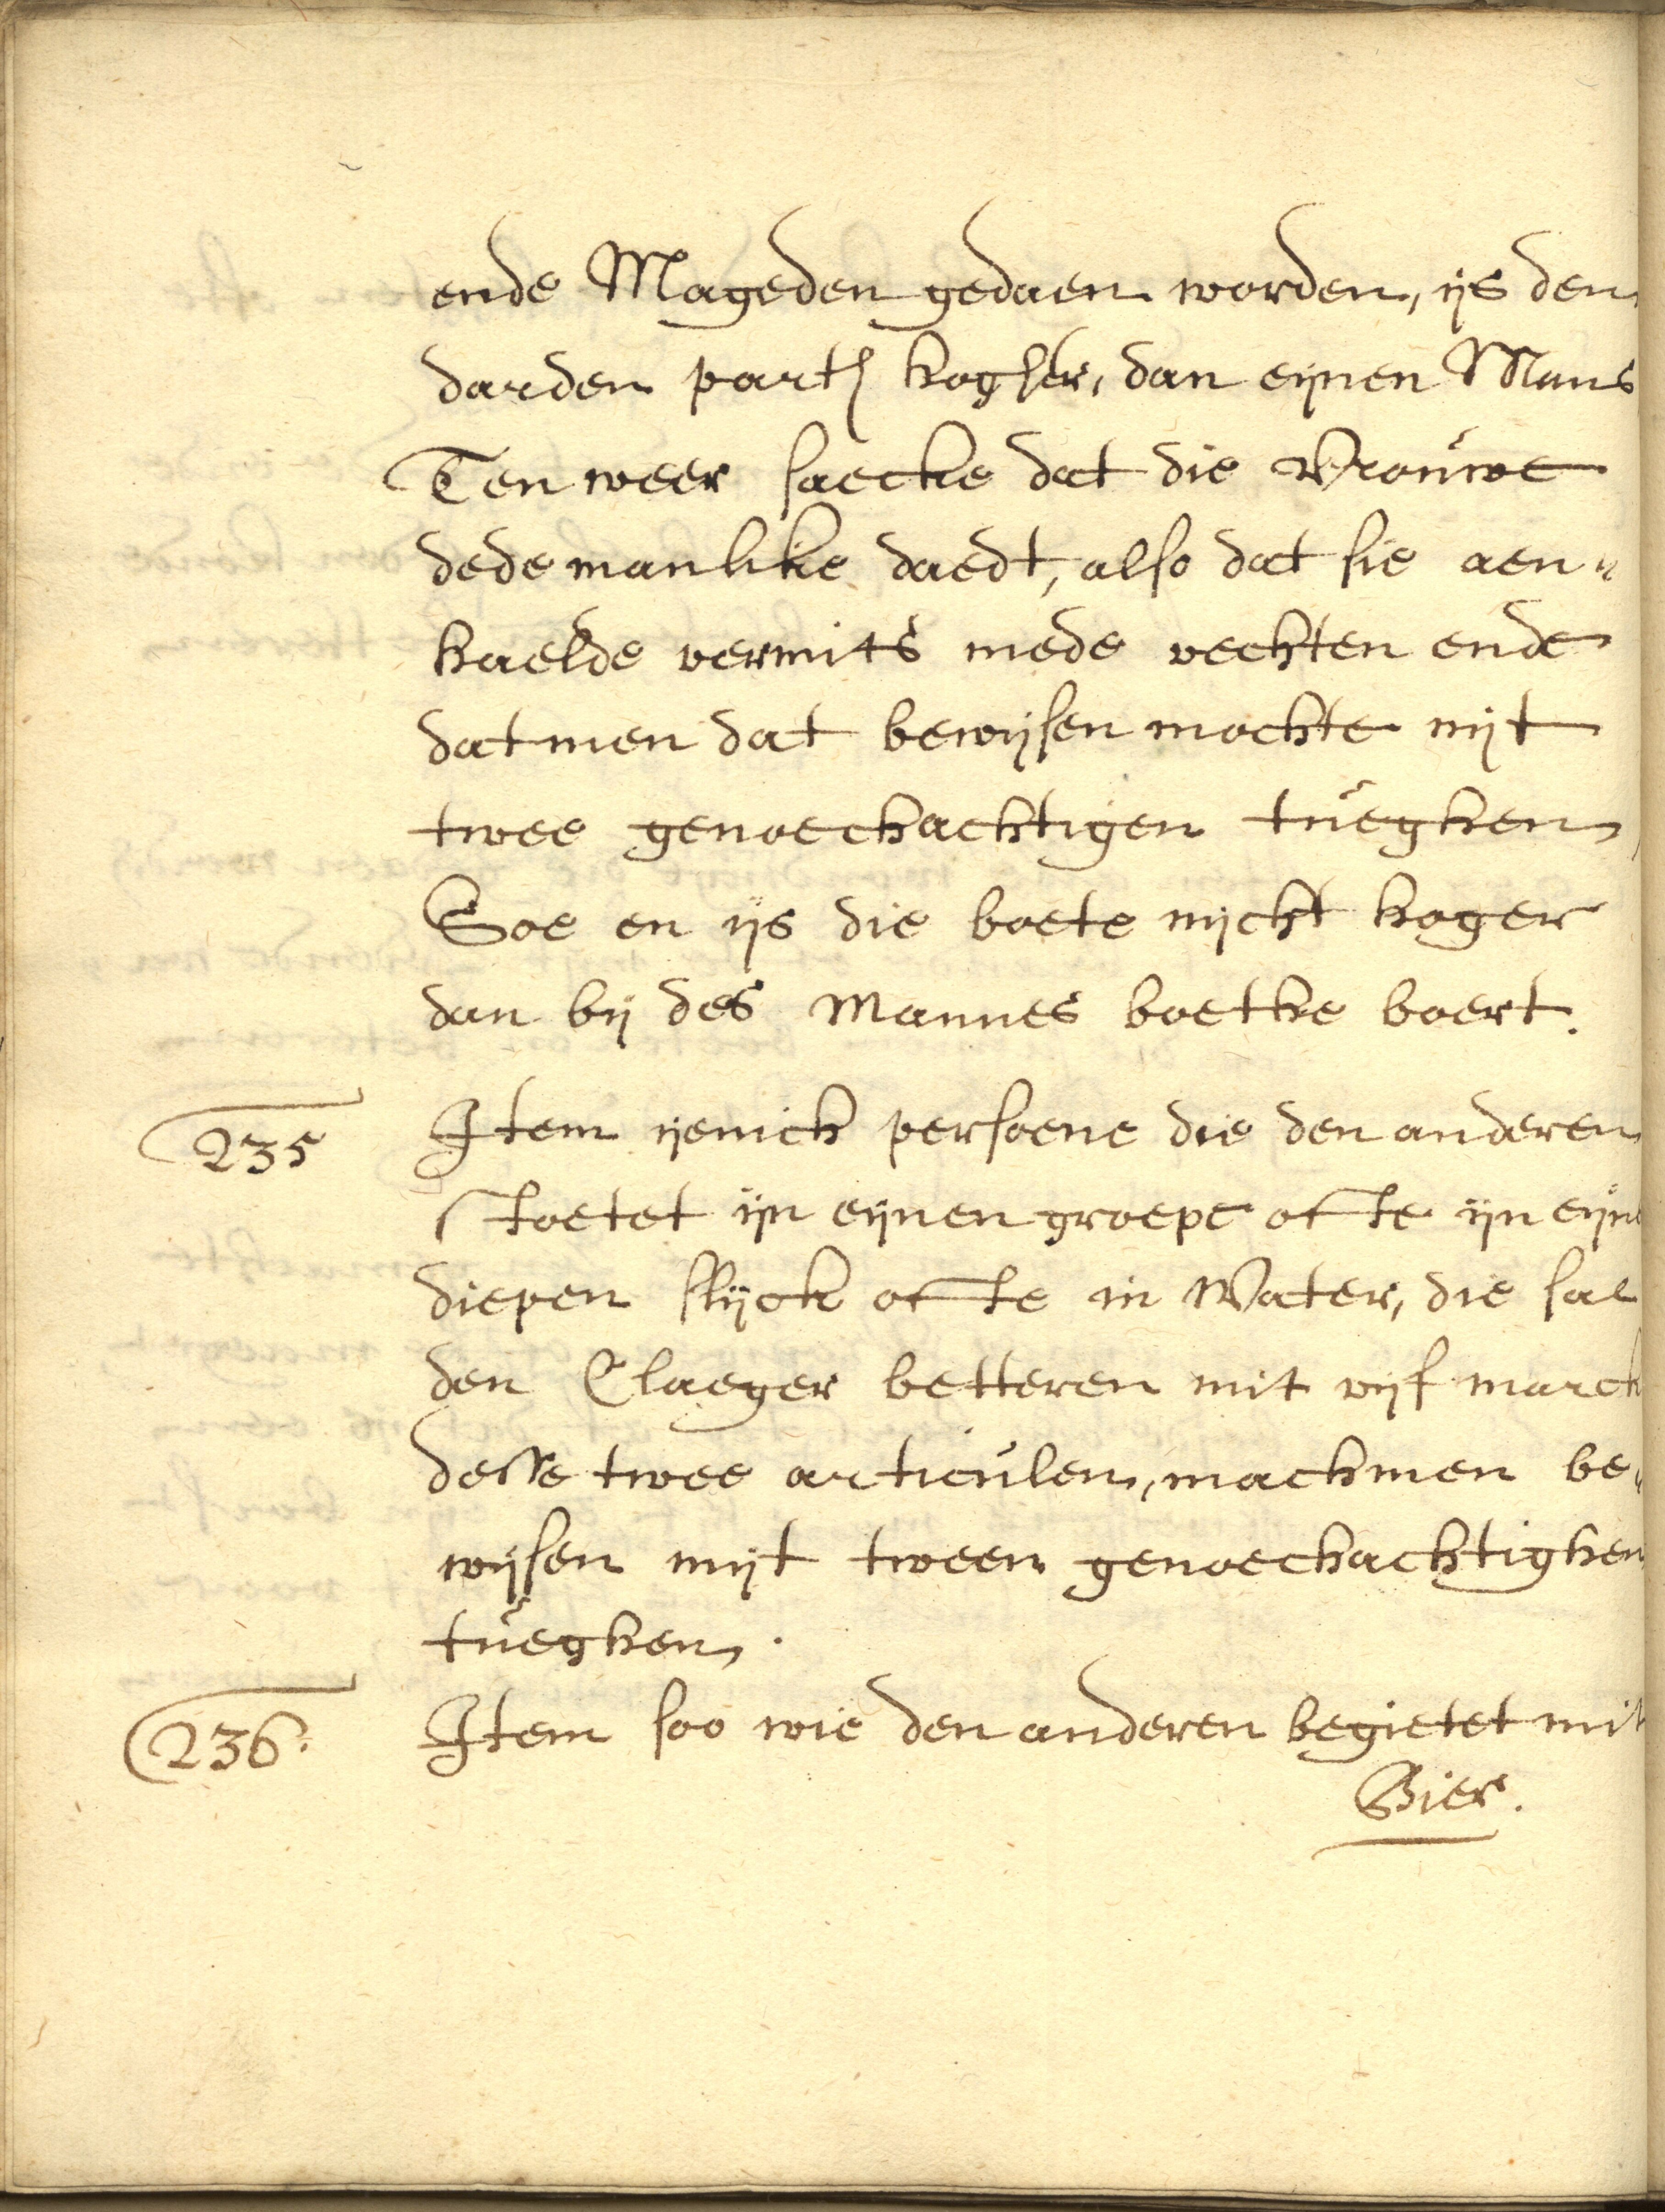 ende Mageden gedaen worden, ijs den
darden parth hogher, dan eijnen Mans
Ten weer saecke dat die Vrouwe
dede manlike daedt, also dat sie aen„
haelde vermits mede vechten ende
datmen dat bewijsen mochte mijt
twee genoechachtigen tueghen,
Soe en ijs die boete nijcht hoger
dan bij des Mannes boethe boert.
235 Item ijenich persoene die den anderen
stoetet ijn eijnen groepe ofte ijn eijne
diepen slijck ofte in Water, die sal
den Claeger betteren mit vijf marck
desse twee articulen, machmen be„
wijsen mijt tween genoechachtighen
tueghen.
236. Item soo wie den anderen begietet mit
Bier.